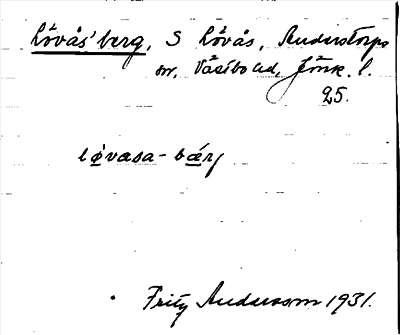 Lövås'berg, S Lövås, Anderstorps
sn, Västbo hd, Jönk. l.
25.
lø̱vasa-bæ̱rj
Fritz Andersson 1931.